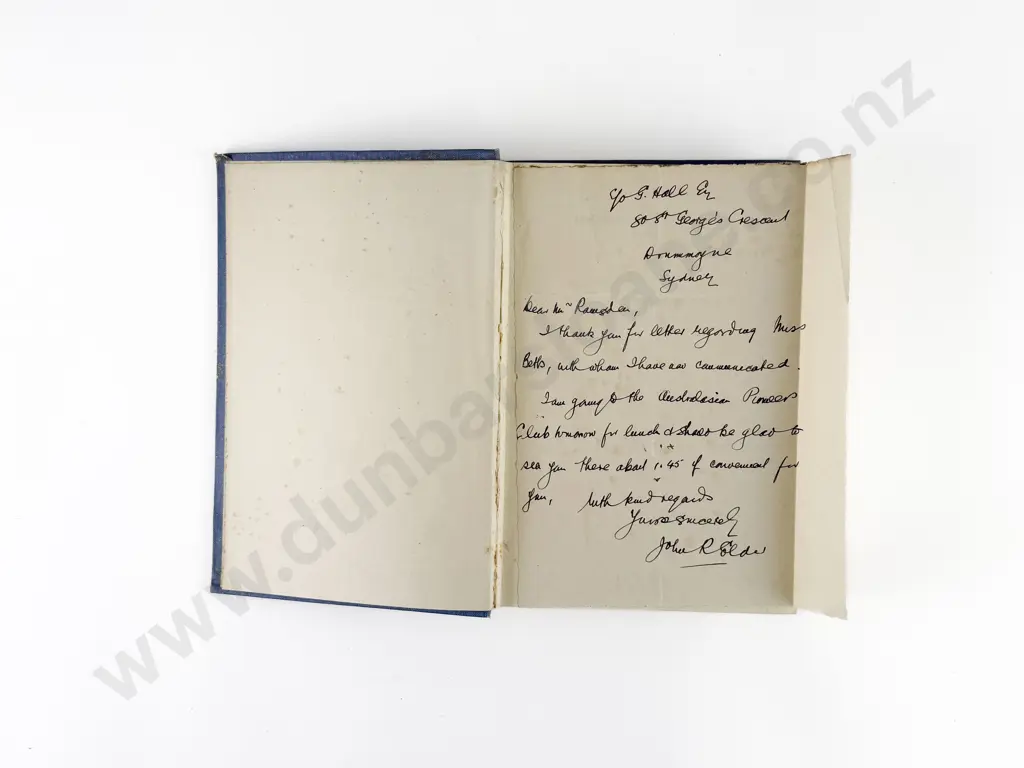 c/o G. Hall Esq
80 St George's Crescent
Drummoyne
Sydney
Dear Mr Ramsden,
I thank you for letter regarding Miss
Betts, with whom I have now communicated.
I am going to the Australasian Pioneers
Club tomorrow for lunch & should be glad to
see you there about 1.45 if convenient for
you, With kind regards
Yours sincerely
John R
www.dunbarsloane.co.nz